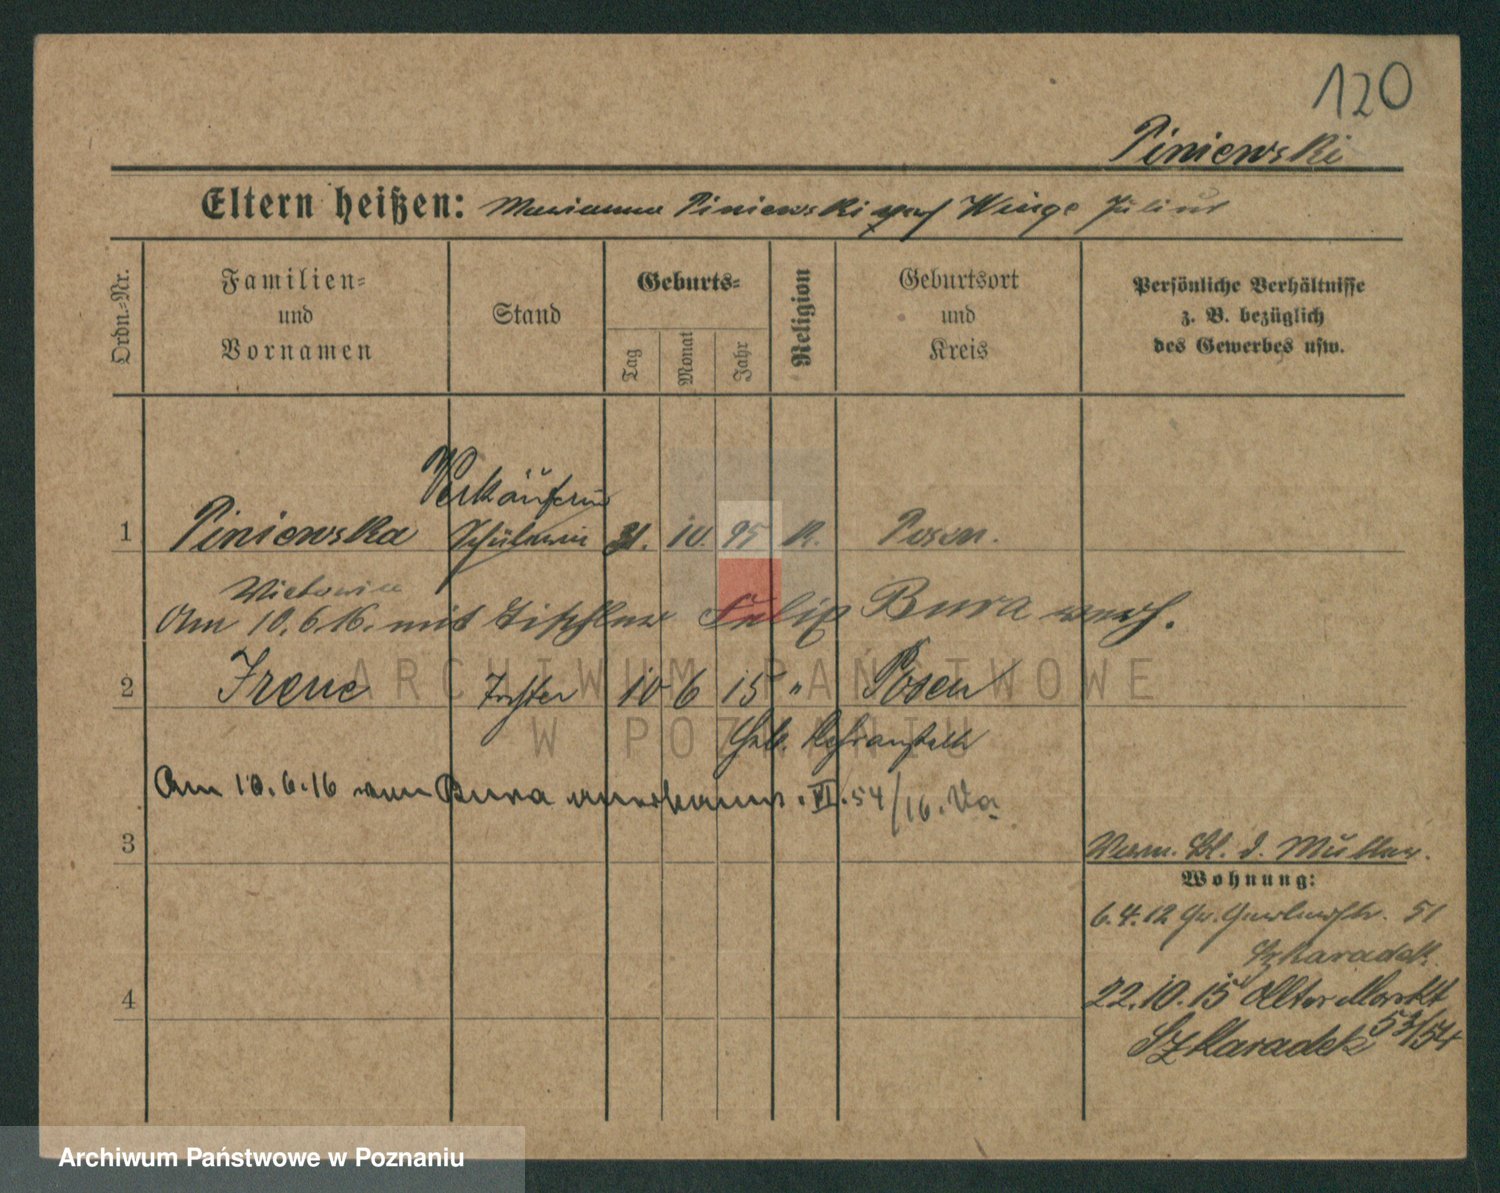 120
Piniewski
Eltern heißen: Marianna Piniewski Julius
Ordn.-Nr.
Familien-
und
Vornamen
Stand
Geburts-
Tag
Monat
Jahr
Religion
Geburtsort
und
Kreis
Persönliche Verhältnisse
z. B. bezüglich
des Gewerbes usw.
Verkäuferin
1 Piniewska Schülerin 31. 10. 95 K. Posen.
Wictoria
Am 10.6.16. mit Tischler Felix Bura verh.
ARCHIWUM PAŃSTWOWE
W POZNANIU
2 Irene Tochter 10 6 15 " Posen
Geb.
Am 10.6.16 von Bura anerkannt. VI. 54/16.
3
d. Mutter.
Wohnung:
6.4.12 Gr. Gerberstr. 51
Szkaradek
4
22.10.15 Alter Markt
53/54
Szkaradek
Archiwum Państwowe w Poznaniu